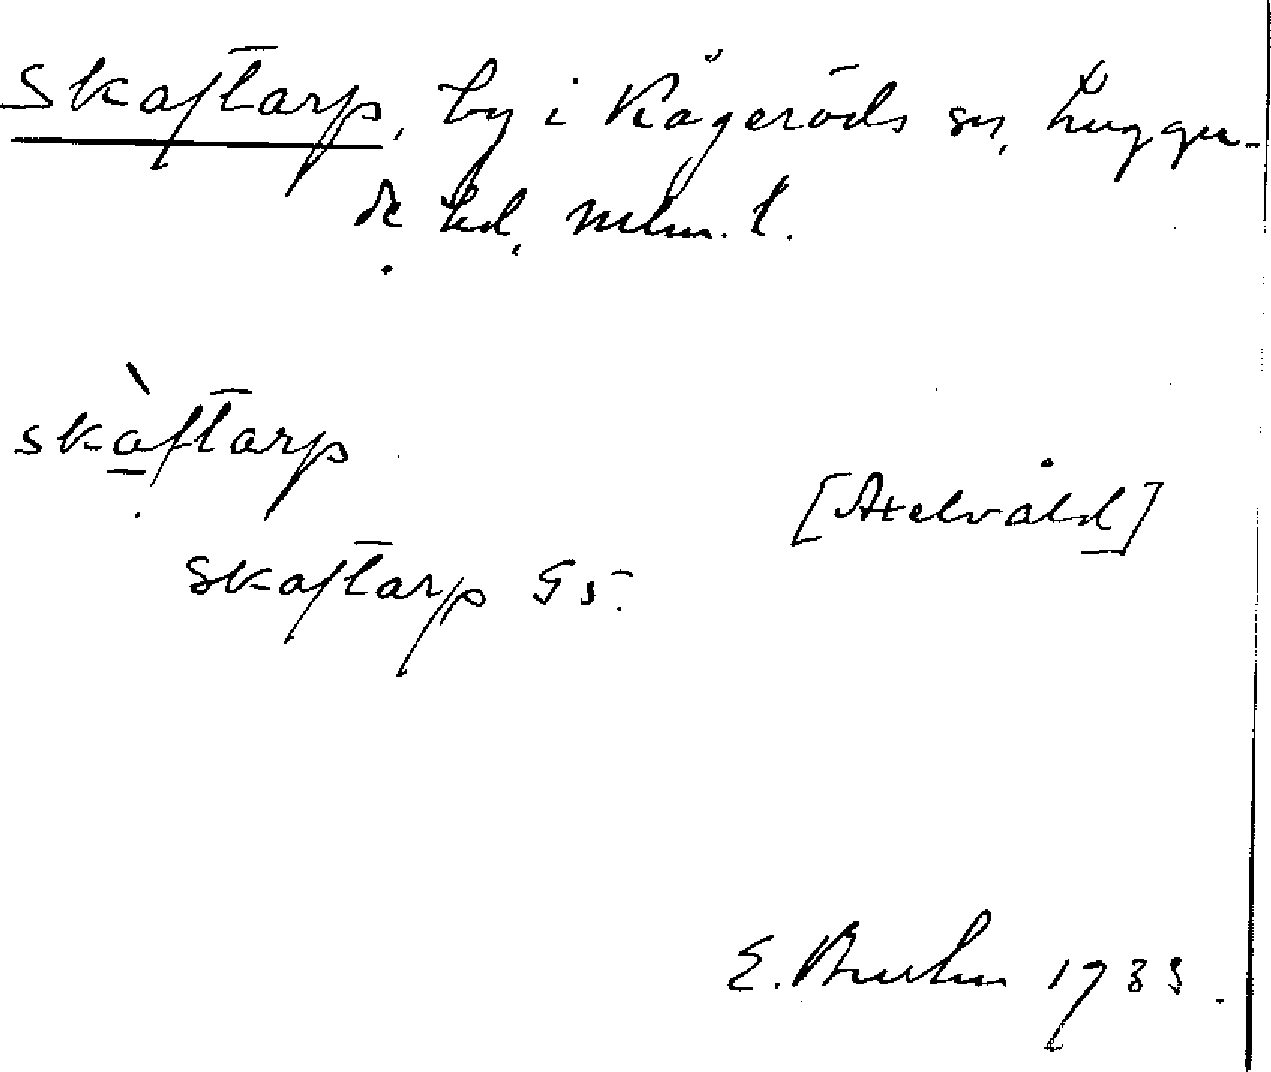 Skaftarp, by i Kågeröds sn, Luggu-
de hd, Mlm. l.
skàftarp
[Axelvåld]
Skaftarp G5.
E. Bruhn 1933.